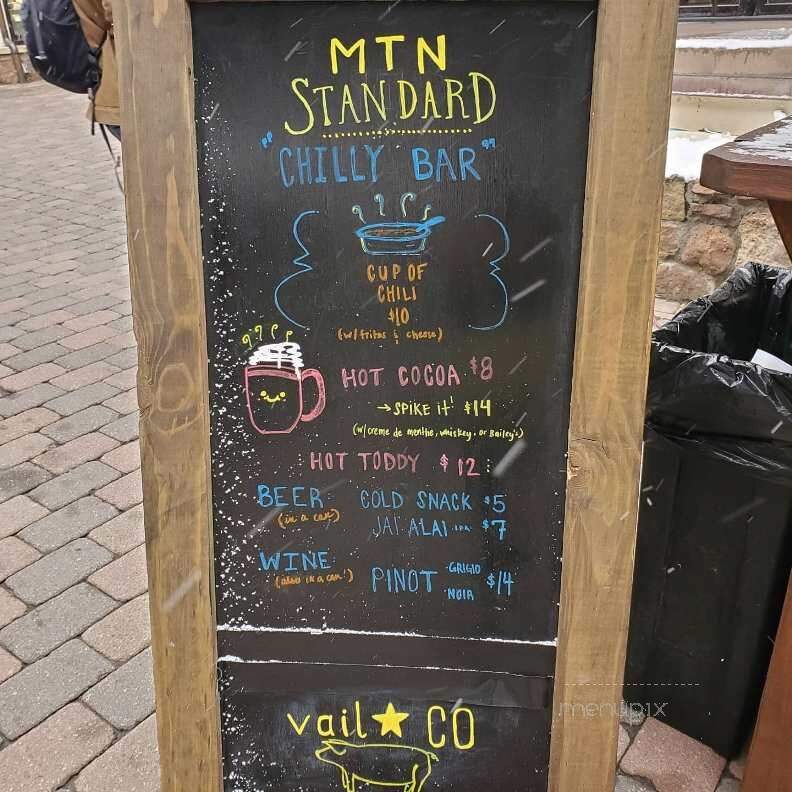 MTN
STANDARD
"CHILLY BAR"
CUP OF
CHILI
$10
(w/ fritos & cheese)
HOT COCOA $8
→ SPIKE it! $14
(w/ creme de menthe, whiskey, or Bailey's)
HOT TODDY $12
BEER COLD SNACK $5
(in a can) JAI ALAI IPA $7
WINE PINOT GRIGIO $14
(also in a can!) NOIR
vail ★ CO
menupix